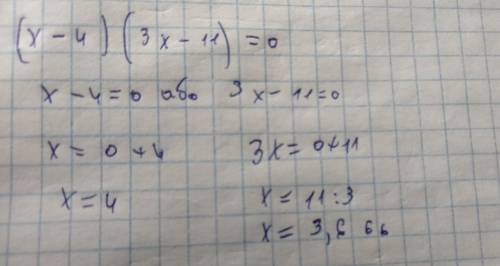 (x - 4) (3x - 11) = 0
x - 4 = 0 або 3x - 11 = 0
x = 0 + 4 3x = 0 + 11
x = 4 x = 11 : 3
x = 3,6 66